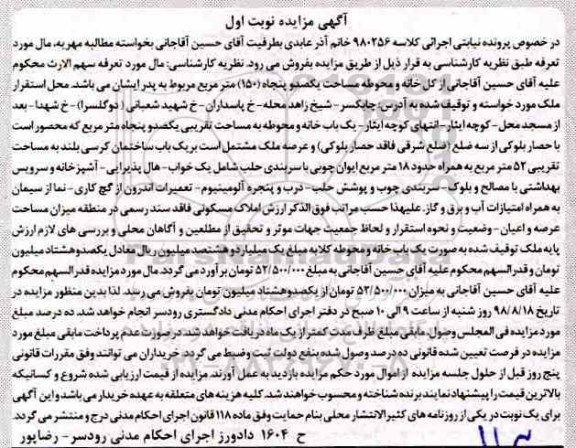 آگهی مزایده نوبت اول
در خصوص پرونده نیابتی اجرائی کلاسه ۹۸۰۲۵۶ خانم آذر عابدی بطرفیت آقای حسین آقاجانی بخواسته مطالبه مهریه، مال مورد
تعرفه طبق نظریه کارشناسی به قرار ذیل از طریق مزایده بفروش می رود. نظریه کارشناسی: مال مورد تعرفه سهم الارث محکوم
علیه آقای حسین آقاجانی از کل خانه و محوطه مساحت یکصدو پنجاه (۱۵۰) متر مربع مربوط به پدر ایشان می باشد. محل استقرار
ملک مورد خواسته و توقیف شده به آدرس: چابکسر - شیخ زاهد محله - خ پاسداران - خ شهید شعبانی (دوگلسرا) - خ شهدا - بعد
از مسجد محل - کوچه ایثار - انتهای کوچه ایثار - یک باب خانه و محوطه به مساحت تقریبی یکصدو پنجاه متر مربع که محصور است
با حصار بلوکی از سه ضلع (ضلع شرقی فاقد حصار بلوکی) و عرصه ملک مشتمل است بر یک باب ساختمان کرسی بلند به مساحت
تقریبی ۵۲ متر مربع به همراه حدود ۱۸ متر مربع ایوان چوبی با سربندی حلب شامل یک خواب - هال پذیرایی - آشپزخانه و سرویس
بهداشتی با مصالح و بلوک - سربندی چوب و پوشش حلب - درب و پنجره آلومینیوم - تعمیرات اندرون از گچ کاری - نما از سیمان
به همراه امتیازات آب و برق و گاز. علیهذا حسب مراتب فوق الذکر ارزش املاک مسکونی فاقد سند رسمی در منطقه میزان مساحت
عرصه و اعیان - وضعیت و نحوه استقرار و لحاظ جمعیت جهات موثر و تحقیق از مطلعین و آگاهان محلی و بررسی های لازم ارزش
پایه ملک توقیف شده به صورت یک باب خانه و محوطه کلا به مبلغ یک میلیارد و هشتصد میلیون ریال معادل یکصدو هشتاد میلیون
تومان و قدرالسهم محکوم علیه آقای حسین آقاجانی به مبلغ ۵۲/۵۰۰/۰۰۰ تومان برآورد می گردد. مال مورد مزایده قدرالسهم محکوم
علیه آقای حسین آقاجانی به میزان ۵۲/۵۰۰/۰۰۰ تومان از یکصدو هشتاد میلیون تومان بفروش می رسد. لذا بدین منظور مزایده در
تاریخ ۹۸/۸/۱۸ روز شنبه از ساعت ۹ الی ۱۰ صبح در دفتر اجرای احکام مدنی دادگستری رودسر انجام خواهد شد. ده درصد مبلغ
مورد مزایده فی المجلس وصول مابقی مبلغ ظرف مدت کمتر از یک ماه دریافت خواهد شد. در صورت عدم پرداخت مابقی مبلغ مورد
مزایده در فرصت تعیین شده قانونی ده درصد وصول شده بنفع دولت ثبت وضبط می گردد. خریداران می توانند وفق مقررات قانونی
پنج روز قبل از حلول جلسه مزایده از اموال مورد حکم مزایده بازدید به عمل آورند. مزایده از قیمت ارزیابی شده شروع و کسانیکه
بالاترین قیمت را پیشنهاد نمایند برنده شناخته و محسوب خواهند شد. کلیه هزینه های متعلقه به عهده خریدار می باشد و این آگهی
برای یک نوبت در یکی از روزنامه های کثیرالانتشار محلی بنام حمایت وفق ماده ۱۱۸ قانون اجرای احکام مدنی درج و منتشر می گردد.
ح ۱۶۰۴ دادورز اجرای احکام مدنی رودسر - رضاپور